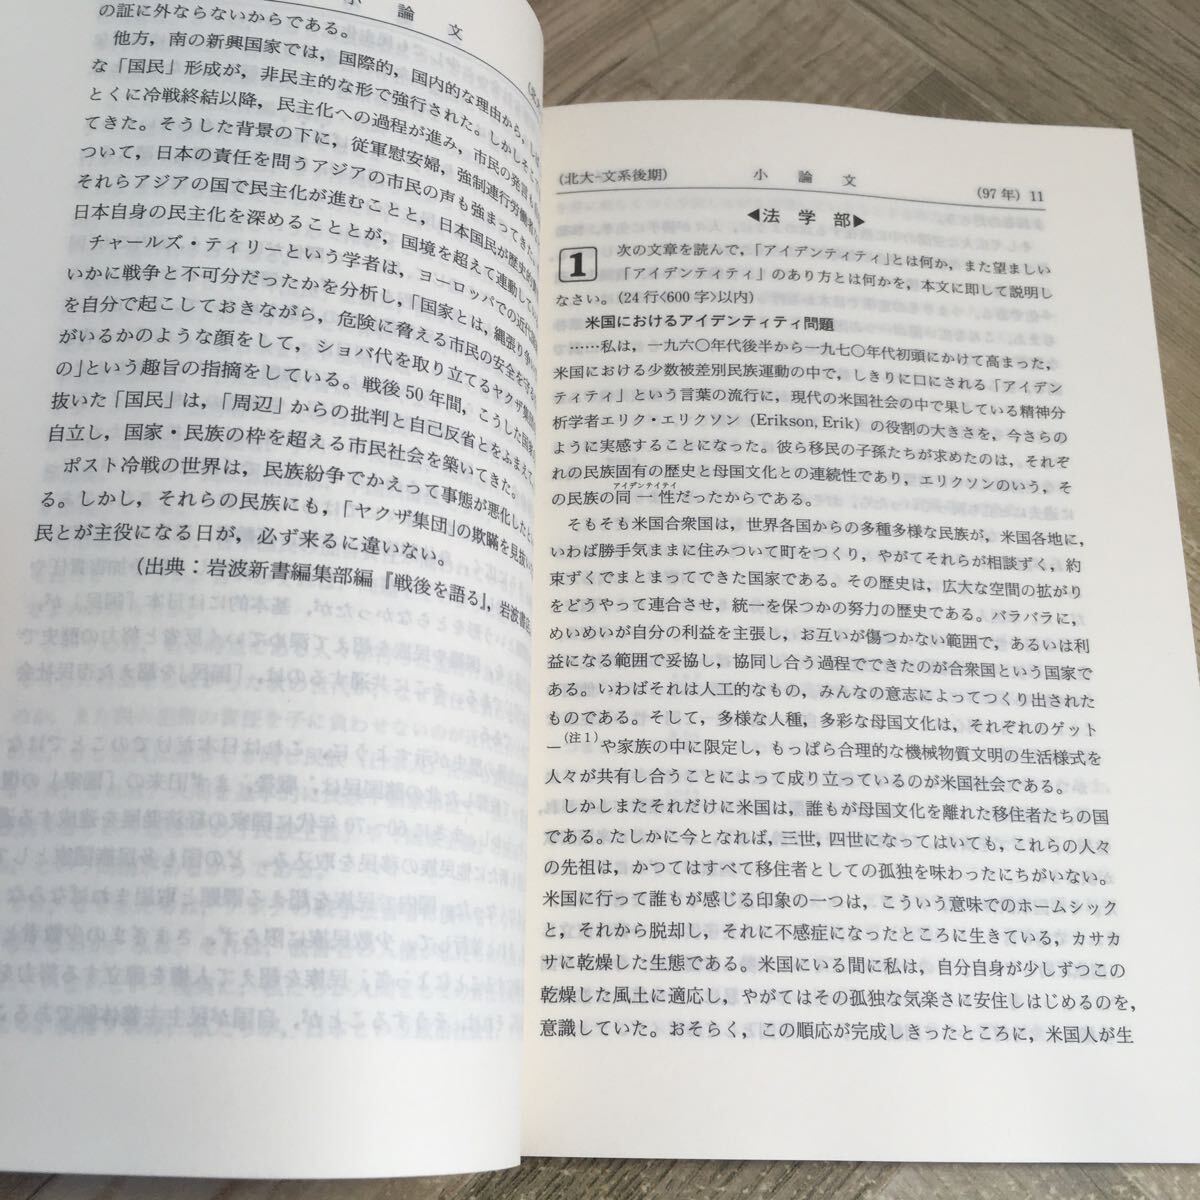 小論文
の証に外ならないからである。
他方，南の新興国家では，国際的，国内的な理由から，
な「国民」形成が，非民主的な形で強行された。しかし
とくに冷戦終結以降，民主化への過程が進み，市民の発言
てきた。そうした背景の下に，従軍慰安婦，強制連行労働
ついて，日本の責任を問うアジアの市民の声も強まってきた
それらアジアの国で民主化が進むことと，日本国民が歴史的
日本自身の民主化を深めることとが，国境を超えて連動して
チャールズ・ティリーという学者は，ヨーロッパでの近代
いかに戦争と不可分だったかを分析し，「国家とは，縄張り争
を自分で起こしておきながら，危険に脅える市民の安全を守
がいるかのような顔をして，ショバ代を取り立てるヤクザ集団
の」という趣旨の指摘をしている。戦後50年間，こうした国家
抜いた「国民」は，「周辺」からの批判と自己反省とをふまえて
自立し，国家・民族の枠を超える市民社会を築いてきた。
ポスト冷戦の世界は，民族紛争でかえって事態が悪化したと
る。しかし，それらの民族にも，「ヤクザ集団」の欺瞞を見抜い
民とが主役になる日が，必ず来るに違いない。
（出典：岩波新書編集部編『戦後を語る』，岩波書
（北大−文系後期） 小論文 （97年）11
◀法学部▶
1 次の文章を読んで，「アイデンティティ」とは何か，また望ましい
「アイデンティティ」のあり方とは何かを，本文に即して説明し
なさい。（24行〈600字〉以内）
米国におけるアイデンティティ問題
……私は，一九六〇年代後半から一九七〇年代初頭にかけて高まった，
米国における少数被差別民族運動の中で，しきりに口にされる「アイデン
ティティ」という言葉の流行に，現代の米国社会の中で果している精神分
析学者エリク・エリクソン（Erikson, Erik）の役割の大きさを，今さらの
ように実感することになった。彼ら移民の子孫たちが求めたのは，それぞ
れの民族固有の歴史と母国文化との連続性であり，エリクソンのいう，そ
アイデンテイテイ
の民族の同一性だったからである。
そもそも米国合衆国は，世界各国からの多種多様な民族が，米国各地に，
いわば勝手気ままに住みついて町をつくり，やがてそれらが相談ずく，約
束ずくでまとまってできた国家である。その歴史は，広大な空間の拡がり
をどうやって連合させ，統一を保つかの努力の歴史である。バラバラに，
めいめいが自分の利益を主張し，お互いが傷つかない範囲で，あるいは利
益になる範囲で妥協し，協同し合う過程でできたのが合衆国という国家で
ある。いわばそれは人工的なもの，みんなの意志によってつくり出された
ものである。そして，多様な人種，多彩な母国文化は，それぞれのゲット
ー（注1）や家族の中に限定し，もっぱら合理的な機械物質文明の生活様式を
人々が共有し合うことによって成り立っているのが米国社会である。
しかしまたそれだけに米国は，誰もが母国文化を離れた移住者たちの国
である。たしかに今となれば，三世，四世になってはいても，これらの人々
の先祖は，かつてはすべて移住者としての孤独を味わったにちがいない。
米国に行って誰もが感じる印象の一つは，こういう意味でのホームシック
と，それから脱却し，それに不感症になったところに生きている，カサカ
サに乾燥した生態である。米国にいる間に私は，自分自身が少しずつこの
乾燥した風土に適応し，やがてはその孤独な気楽さに安住しはじめるのを，
意識していた。おそらく，この順応が完成しきったところに，米国人が生